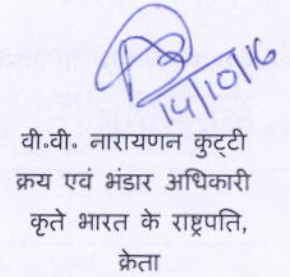 14/10/16
वी.वी. नारायणन कुट्टी
क्रय एवं भंडार अधिकारी
कृते भारत के राष्ट्रपति,
क्रेता